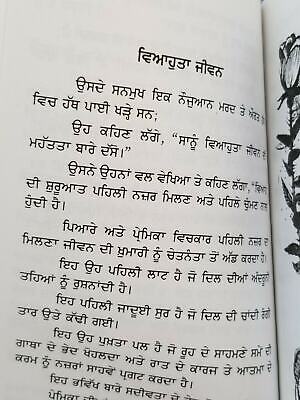 ਵਿਆਹੁਤਾ ਜੀਵਨ
ਉਸਦੇ ਸਨਮੁਖ ਇਕ ਨੌਜੁਆਨ ਮਰਦ ਤੇ ਔਰਤ
ਵਿਚ ਹੱਥ ਪਾਈ ਖੜੇ ਸਨ;
ਉਹ ਕਹਿਣ ਲੱਗੇ, “ਸਾਨੂੰ ਵਿਆਹੁਤਾ ਜੀਵਨ
ਮਹੱਤਤਾ ਬਾਰੇ ਦੱਸੋ।”
ਉਸਨੇ ਉਹਨਾਂ ਵਲ ਵੇਖਿਆ ਤੇ ਕਹਿਣ ਲੱਗਾ,
ਦੀ ਸ਼ੁਰੂਆਤ ਪਹਿਲੀ ਨਜ਼ਰ ਮਿਲਣ ਅਤੇ ਪਹਿਲੇ ਚੁੰਮਣ ਨਾਲ
ਹੁੰਦੀ ਹੈ।
ਪਿਆਰੇ ਅਤੇ ਪ੍ਰੇਮਿਕਾ ਵਿਚਕਾਰ ਪਹਿਲੀ ਨਜ਼ਰ ਦਾ
ਮਿਲਣਾ ਜੀਵਨ ਦੀ ਖ਼ੁਮਾਰੀ ਨੂੰ ਚੇਤਨੰਤਾ ਤੋਂ ਅੱਡ ਕਰਦਾ ਹੈ।
ਇਹ ਉਹ ਪਹਿਲੀ ਲਾਟ ਹੈ ਜੋ ਦਿਲ ਦੀਆਂ ਅੰਦਰੂਨੀ
ਤਹਿਆਂ ਨੂੰ ਰੁਸ਼ਨਾਂਦੀ ਹੈ।
ਇਹ ਪਹਿਲੀ ਜਾਦੂਈ ਸੁਰ ਹੈ ਜੋ ਦਿਲ ਦੀ ਚਾਂਦੀ ਰੰਗੀ
ਤਾਰ ਉਤੇ ਕੱਢੀ ਗਈ।
ਇਹ ਉਹ ਪੁਖ਼ਤਾ ਪਲ ਹੈ ਜੋ ਰੂਹ ਦੇ ਸਾਹਮਣੇ ਸਮੇਂ ਦੀ
ਗਾਥਾ ਦੇ ਭੇਦ ਖੋਹਲਦਾ ਅਤੇ ਰਾਤ ਦੇ ਕਾਰਜ ਤੇ ਆਤਮਾ ਦੇ
ਕਰਮ ਨੂੰ ਨਜ਼ਰਾਂ ਸਾਹਵੇ ਪ੍ਰਗਟ ਕਰਦਾ ਹੈ।
ਇਹ ਭਵਿੱਖ ਬਾਰੇ ਸਦੀਵਤਾ ਦੇ
ਪ੍ਰੇਮਿਕਾ ਦੀ